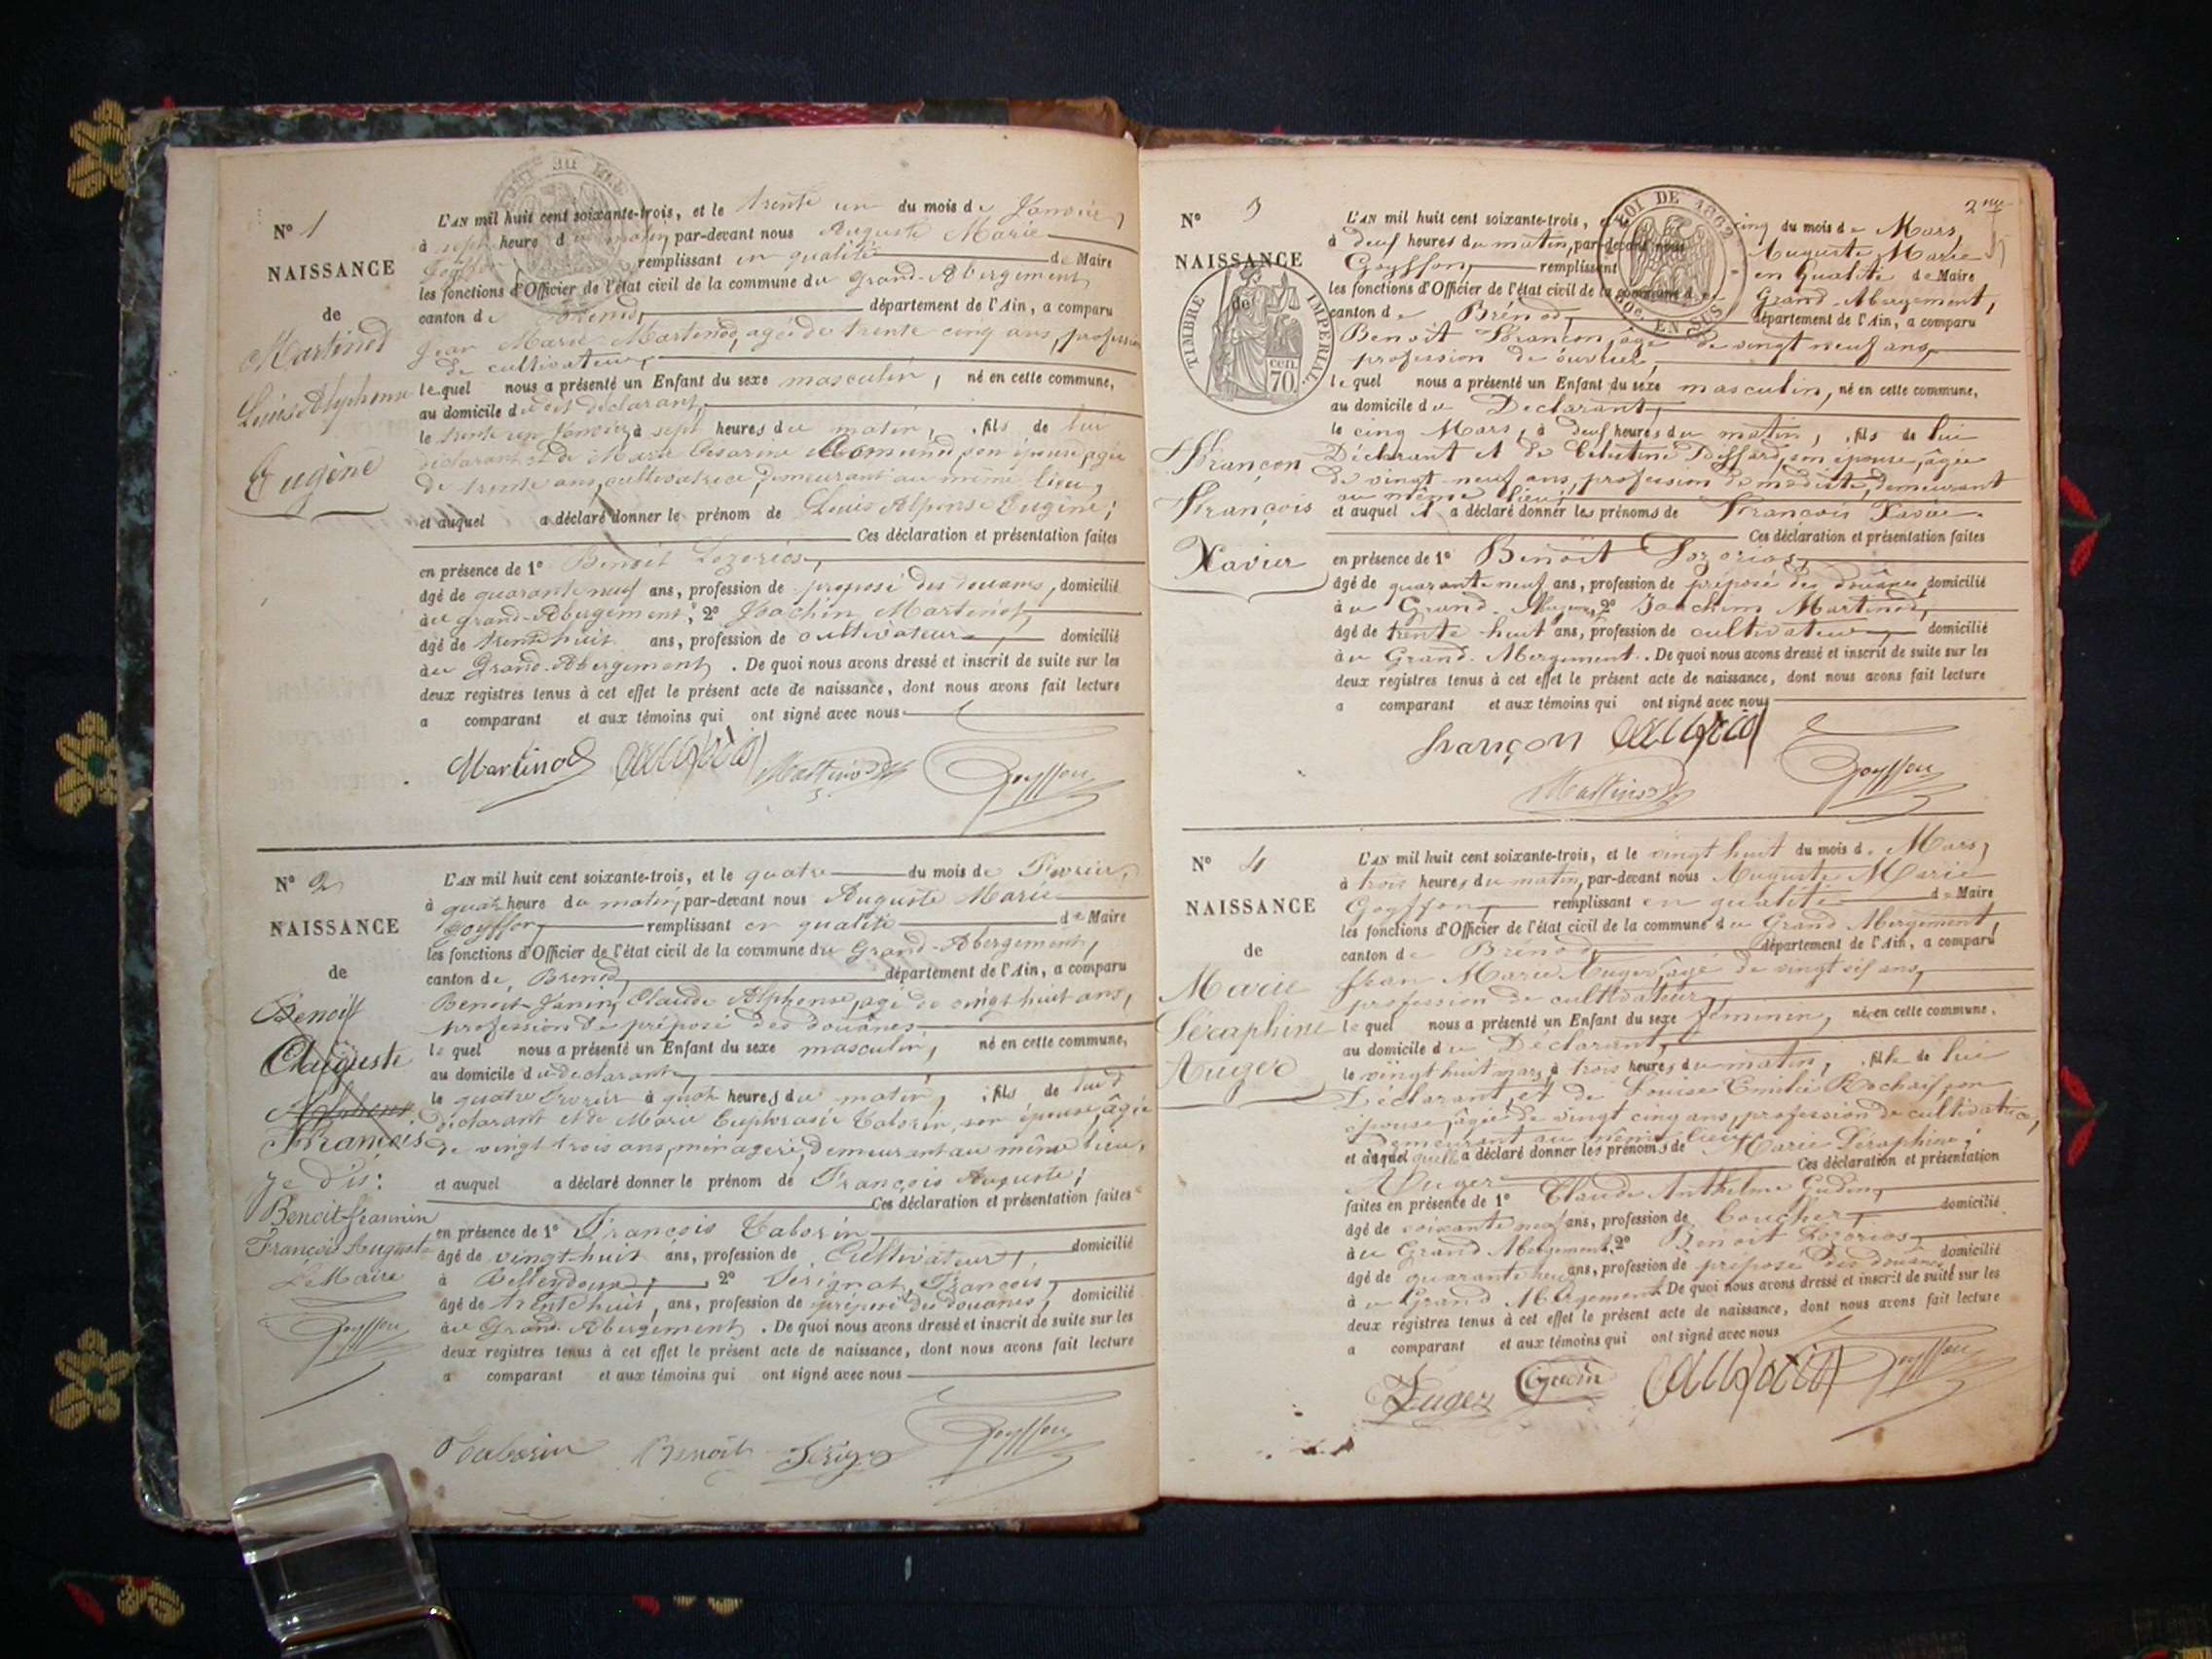 N° 1
NAISSANCE
de
Martinod
Louis Alphonse
Eugène
L'AN mil huit cent soixante-trois, et le trente un du mois de Janvier,
à sept heure du matin, par-devant nous Auguste Marie
Goyffon remplissant en qualité de Maire
les fonctions d'Officier de l'état civil de la commune du Grand-Abergement,
canton de Brénod, département de l'Ain, a comparu
Jean Marie Martinod, agé de trente cinq ans, profession
de cultivateur,
lequel nous a présenté un Enfant du sexe masculin, né en cette commune,
au domicile du dit déclarant,
le trente un Janvier, à sept heures du matin, fils de lui
déclarant et de Marie Césarine son épouse, agée
de trente ans, cultivatrice, demeurant au même lieu,
et auquel a déclaré donner le prénom de Louis Alponse Eugène;
Ces déclaration et présentation faites
en présence de 1° Benoit Lozerios,
âgé de quarante neuf ans, profession de préposé des douanes, domicilié
au grand-Abergement; 2° Joachim Martinod,
âgé de trente huit ans, profession de cultivateur, domicilié
au Grand-Abergement. De quoi nous avons dressé et inscrit de suite sur les
deux registres tenus à cet effet le présent acte de naissance, dont nous avons fait lecture
a comparant et aux témoins qui ont signé avec nous
Martinod Martinod Goyffon
N° 2
NAISSANCE
de
Benoit
Auguste
Alphonse
François
je dis:
Benoit-Jeannin
François Auguste
Le Maire
Goyffon
L'AN mil huit cent soixante-trois, et le quatre du mois de Février,
à quatre heure du matin, par-devant nous Auguste Marie
Goyffon, remplissant en qualité de Maire
les fonctions d'Officier de l'état civil de la commune du Grand-Abergement,
canton de Brenod, département de l'Ain, a comparu
Benoit-Janin, Claude Alphonse, agé de vingt huit ans,
profession de préposé des douanes
lequel nous a présenté un Enfant du sexe masculin, né en cette commune,
au domicile du déclarant,
le quatre Fevrier à quatre heures du matin, fils de lui
déclarant et de Marie Euphrasie Taborin, son épouse, âgée
de vingt trois ans, ménagère, demeurant au même lieu,
et auquel a déclaré donner le prénom de François Auguste;
Ces déclaration et présentation faites
en présence de 1° François Taborin
âgé de vingt huit ans, profession de Cultivateur, domicilié
à Belleydoux; 2° Serignat, François,
âgé de trente huit, ans, profession de préposé des douanes, domicilié
au Grand-Abergement. De quoi nous avons dressé et inscrit de suite sur les
deux registres tenus à cet effet le présent acte de naissance, dont nous avons fait lecture
a comparant et aux témoins qui ont signé avec nous
Taborin Benoit Goyffon
2me
N° 3
NAISSANCE
de
TIMBRE IMPERIAL
70 cen
LOI DE 1862
EN SUS
Françon
François
Xavier
L'AN mil huit cent soixante-trois, et le cinq du mois de Mars,
à deuf heures du matin, par-devant nous Auguste Marie
Goyffon, remplissant en Qualité de Maire
les fonctions d'Officier de l'état civil de la commune du Grand-Abergement,
canton de Brénod, département de l'Ain, a comparu
Benoit Françon, âgé de vingt neuf ans,
profession de ouvrier,
lequel nous a présenté un Enfant du sexe masculin, né en cette commune,
au domicile du Déclarant,
le cinq Mars, à deuf heures du matin, fils de lui
Déclarant et de Célestine son epouse, âgée
de vingt-neuf ans, profession de modiste, demeurant
au même lieu,
et auquel il a déclaré donner les prénoms de François Xavier.
Ces déclaration et présentation faites
en présence de 1° Benoit Lozerios,
âgé de quarante neuf ans, profession de préposé des douânes, domicilié
au Grand-Aberge. 2° Joachim Martinod,
âgé de trente huit ans, profession de cultivateur, domicilié
au Grand-Abergement. De quoi nous avons dressé et inscrit de suite sur les
deux registres tenus à cet effet le présent acte de naissance, dont nous avons fait lecture
a comparant et aux témoins qui ont signé avec nous
françon Goyffon
Martinod
N° 4
NAISSANCE
de
Marie
Séraphine
Auger
L'AN mil huit cent soixante-trois, et le vingt huit du mois de Mars,
à trois heures du matin, par-devant nous Auguste Marie
Goyffon, remplissant en qualité de Maire
les fonctions d'Officier de l'état civil de la commune du Grand Abergement,
canton de Brénod, département de l'Ain, a comparu
Jean Marie Auger, âgé de vingt sif ans,
profession de cultivateur,
lequel nous a présenté un Enfant du sexe féminin, né en cette commune.
au domicile du Déclarant,
le vingt huit mars, à trois heures du matin, fille de lui
Déclarant, et de Louise Emélie Rochaif, son
épouse, âgée de vingt cinq ans, profession de cultivatrice,
demeurant au même lieu,
et à laquelle a déclaré donner les prénoms de Marie Séraphine;
Auger Ces déclaration et présentation
faites en présence de 1° Claude Anthelme Gudin,
âgé de soixante neuf ans, profession de boucher, domicilié
au Grand Abergement. 2° Benoit Lozerios,
âgé de quarante neuf ans, profession de préposé des douânes, domicilié
au Grand Abergement. De quoi nous avons dressé et inscrit de suite sur les
deux registres tenus à cet effet le présent acte de naissance, dont nous avons fait lecture
a comparant et aux témoins qui ont signé avec nous
Auger Gudin Goyffon